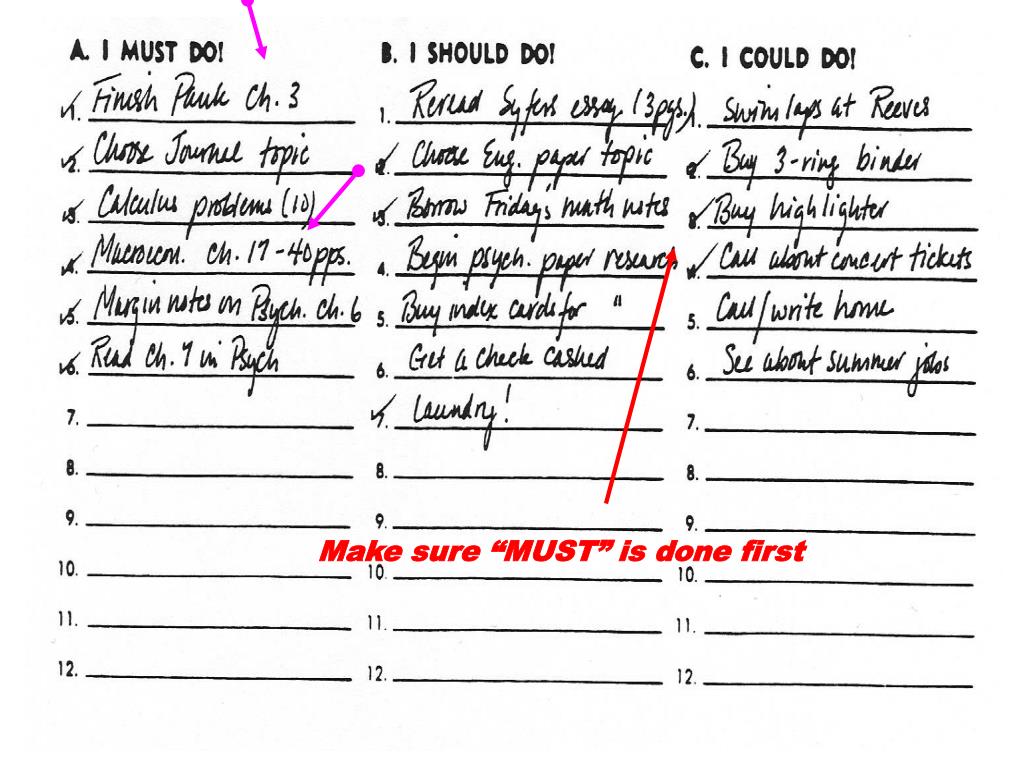 A. I MUST DO!
1. Finish Pauk Ch. 3
2. Choose Journal topic
3. Calculus problems (10)
4. Macroecon. Ch. 17-40pps.
5. Margin notes on Psych. Ch. 6
6. Read Ch. 7 in Psych
7.
8.
9.
10.
11.
12.
B. I SHOULD DO!
1. Reread Syfers essay (3pgs.)
2. Choose Eng. paper topic
3. Borrow Friday's math notes
4. Begin psych. paper research
5. Buy index cards for "
6. Get a check cashed
7. Laundry!
8.
9.
10.
11.
12.
C. I COULD DO!
1. Swim laps at Reeves
2. Buy 3-ring binder
3. Buy highlighter
4. Call about concert tickets
5. Call/write home
6. See about summer jobs
7.
8.
9.
10.
11.
12.
Make sure “MUST” is done first